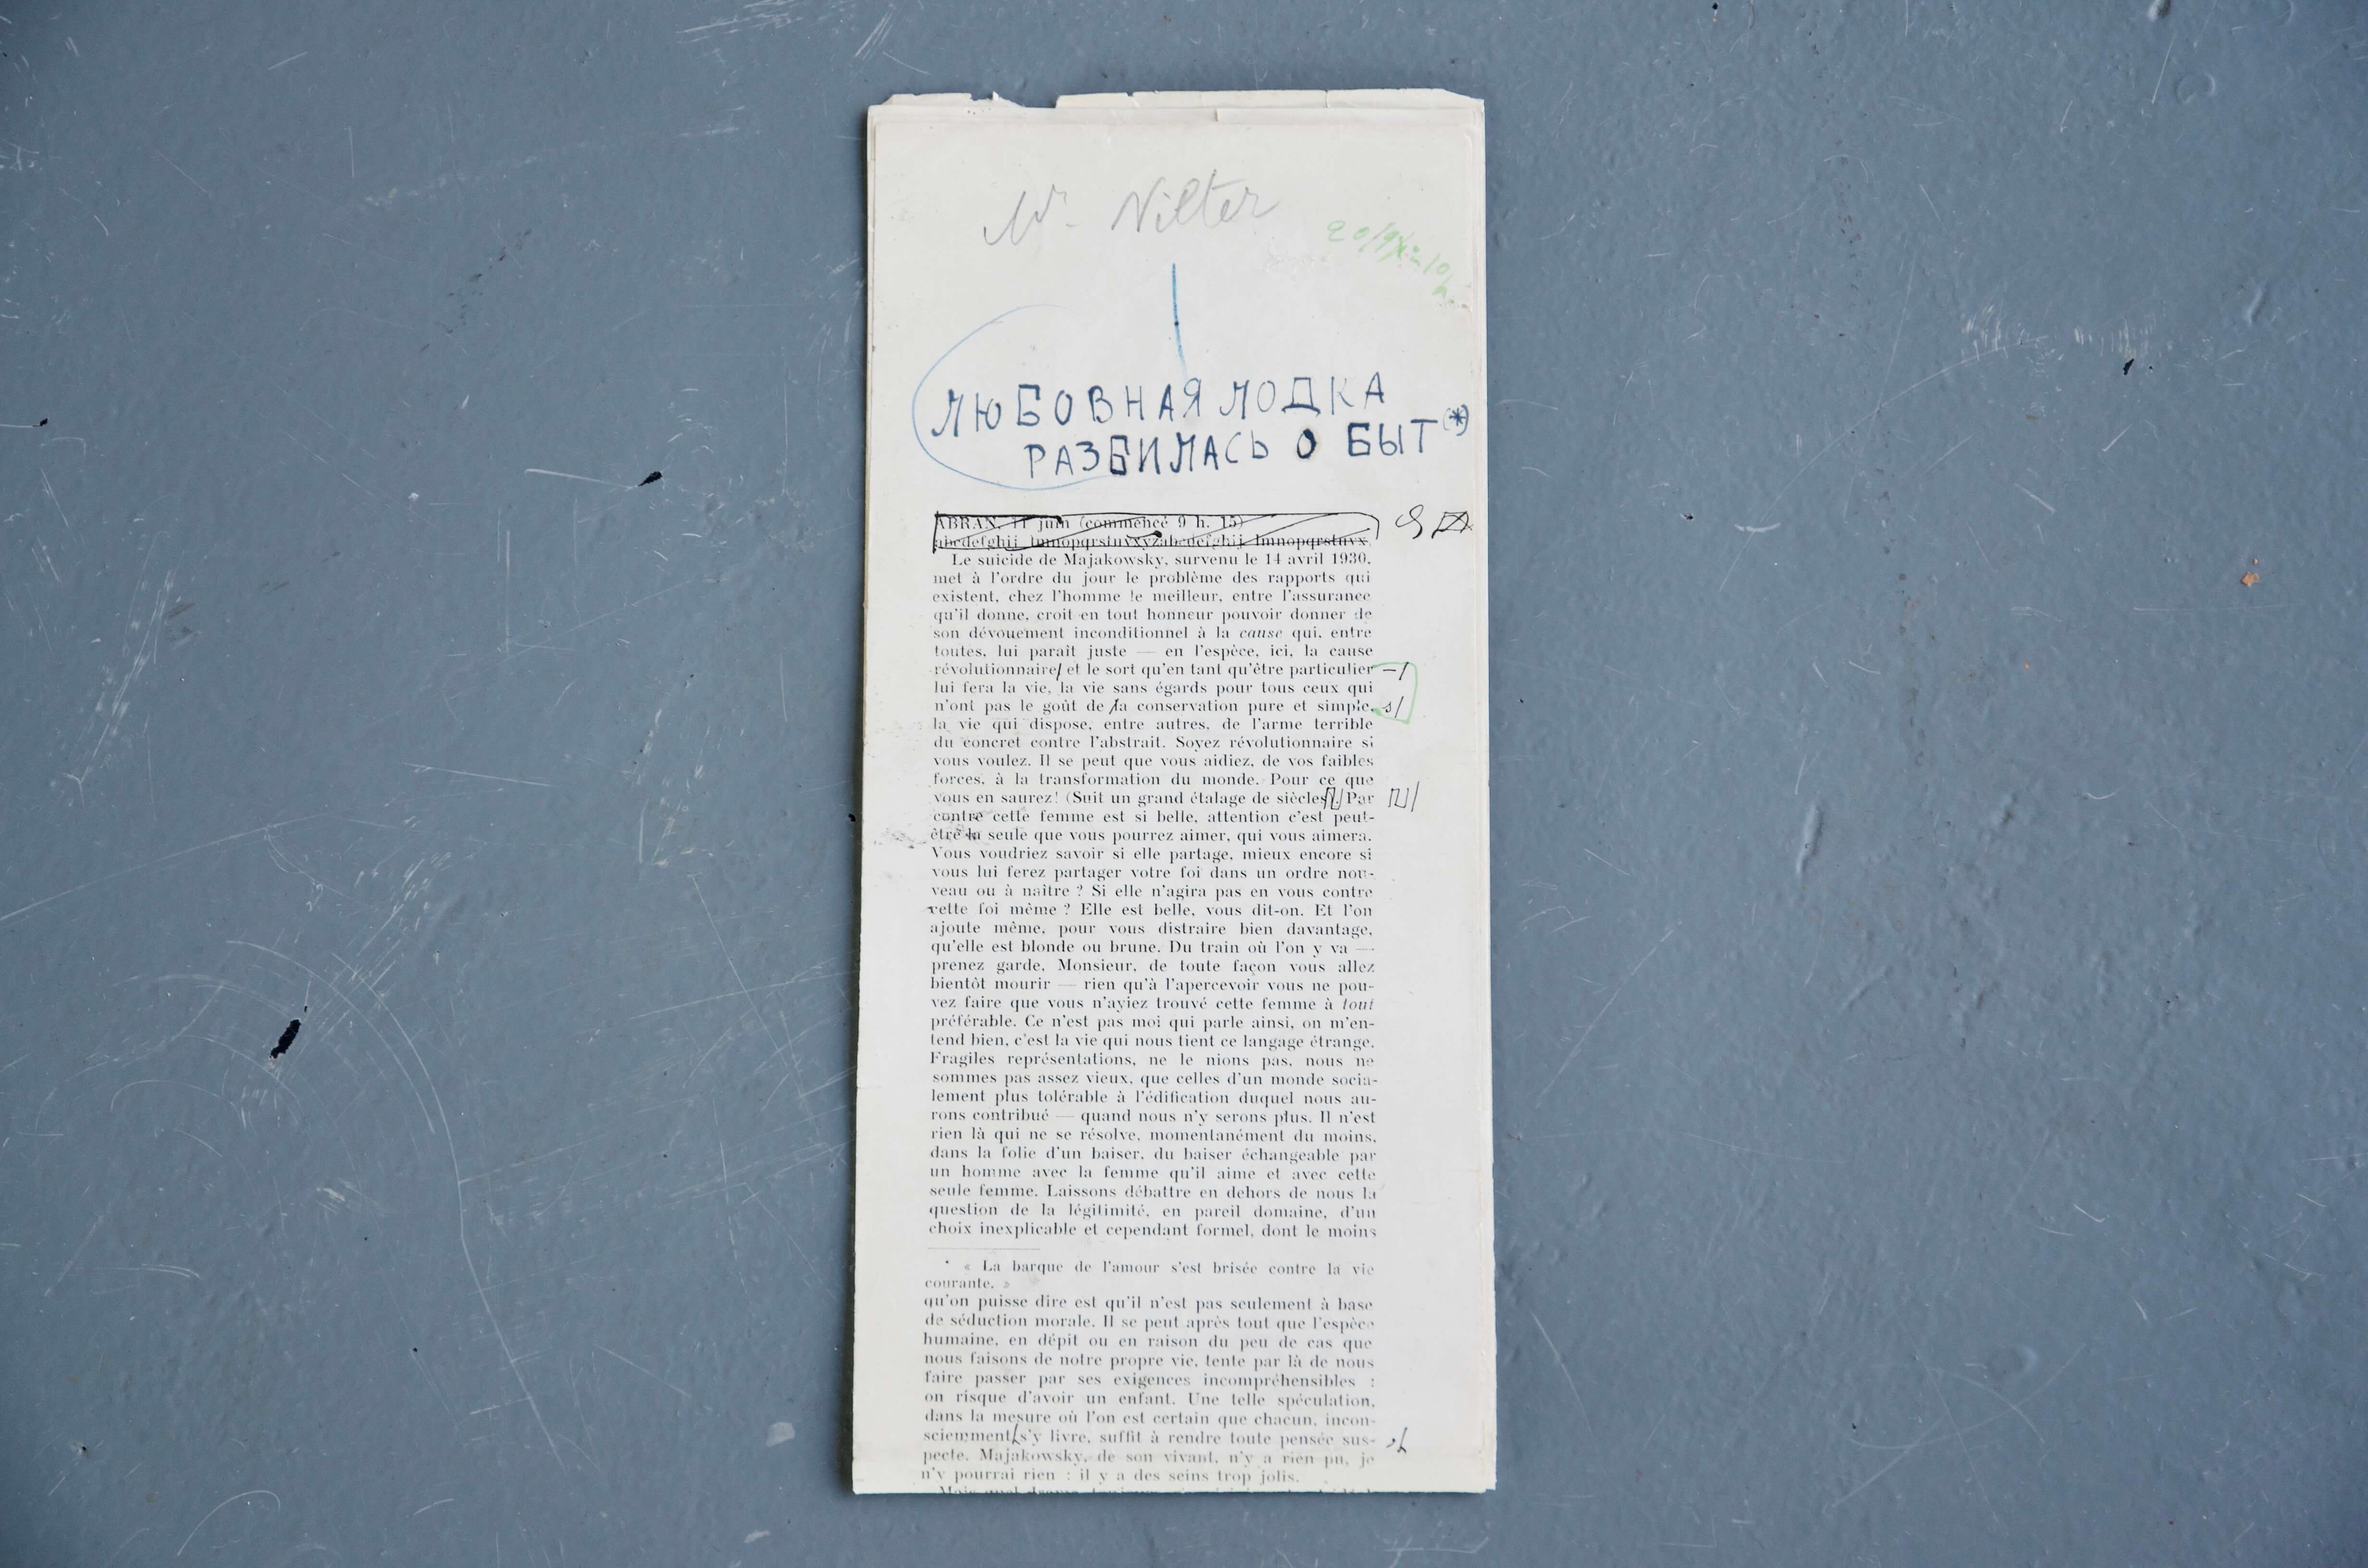 Mr. Nilter
ЛЮБОВНАЯ ЛОДКА
РАЗБИЛАСЬ О БЫТ (*)
ABRAN, 11 juin (commencé 9 h. 15)
abcdefghij lmnopqrstuvxyzabcdefghij lmnopqrstuvx
Le suicide de Majakowsky, survenu le 14 avril 1930,
met à l'ordre du jour le problème des rapports qui
existent, chez l'homme le meilleur, entre l'assurance
qu'il donne, croit en tout honneur pouvoir donner de
son dévouement inconditionnel à la cause qui, entre
toutes, lui paraît juste — en l'espèce, ici, la cause
révolutionnaire/ et le sort qu'en tant qu'être particulier —/
lui fera la vie, la vie sans égards pour tous ceux qui
n'ont pas le goût de /a conservation pure et simple, s/
la vie qui dispose, entre autres, de l'arme terrible
du concret contre l'abstrait. Soyez révolutionnaire si
vous voulez. Il se peut que vous aidiez, de vos faibles
forces, à la transformation du monde. Pour ce que
vous en saurez! (Suit un grand étalage de siècles Par
contre cette femme est si belle, attention c'est peut-
être la seule que vous pourrez aimer, qui vous aimera.
Vous voudriez savoir si elle partage, mieux encore si
vous lui ferez partager votre foi dans un ordre nou-
veau ou à naître ? Si elle n'agira pas en vous contre
cette foi même ? Elle est belle, vous dit-on. Et l'on
ajoute même, pour vous distraire bien davantage,
qu'elle est blonde ou brune. Du train où l'on y va —
prenez garde, Monsieur, de toute façon vous allez
bientôt mourir — rien qu'à l'apercevoir vous ne pou-
vez faire que vous n'ayiez trouvé cette femme à tout
préférable. Ce n'est pas moi qui parle ainsi, on m'en-
tend bien, c'est la vie qui nous tient ce langage étrange.
Fragiles représentations, ne le nions pas, nous ne
sommes pas assez vieux, que celles d'un monde socia-
lement plus tolérable à l'édification duquel nous au-
rons contribué — quand nous n'y serons plus. Il n'est
rien là qui ne se résolve, momentanément du moins,
dans la folie d'un baiser, du baiser échangeable par
un homme avec la femme qu'il aime et avec cette
seule femme. Laissons débattre en dehors de nous la
question de la légitimité, en pareil domaine, d'un
choix inexplicable et cependant formel, dont le moins
* « La barque de l'amour s'est brisée contre la vie
courante. »
qu'on puisse dire est qu'il n'est pas seulement à base
de séduction morale. Il se peut après tout que l'espèce
humaine, en dépit ou en raison du peu de cas que
nous faisons de notre propre vie, tente par là de nous
faire passer par ses exigences incompréhensibles :
on risque d'avoir un enfant. Une telle spéculation,
dans la mesure où l'on est certain que chacun, incon-
sciemment s'y livre, suffit à rendre toute pensée sus- ,/
pecte. Majakowsky, de son vivant, n'y a rien pu, je
n'y pourrai rien : il y a des seins trop jolis.